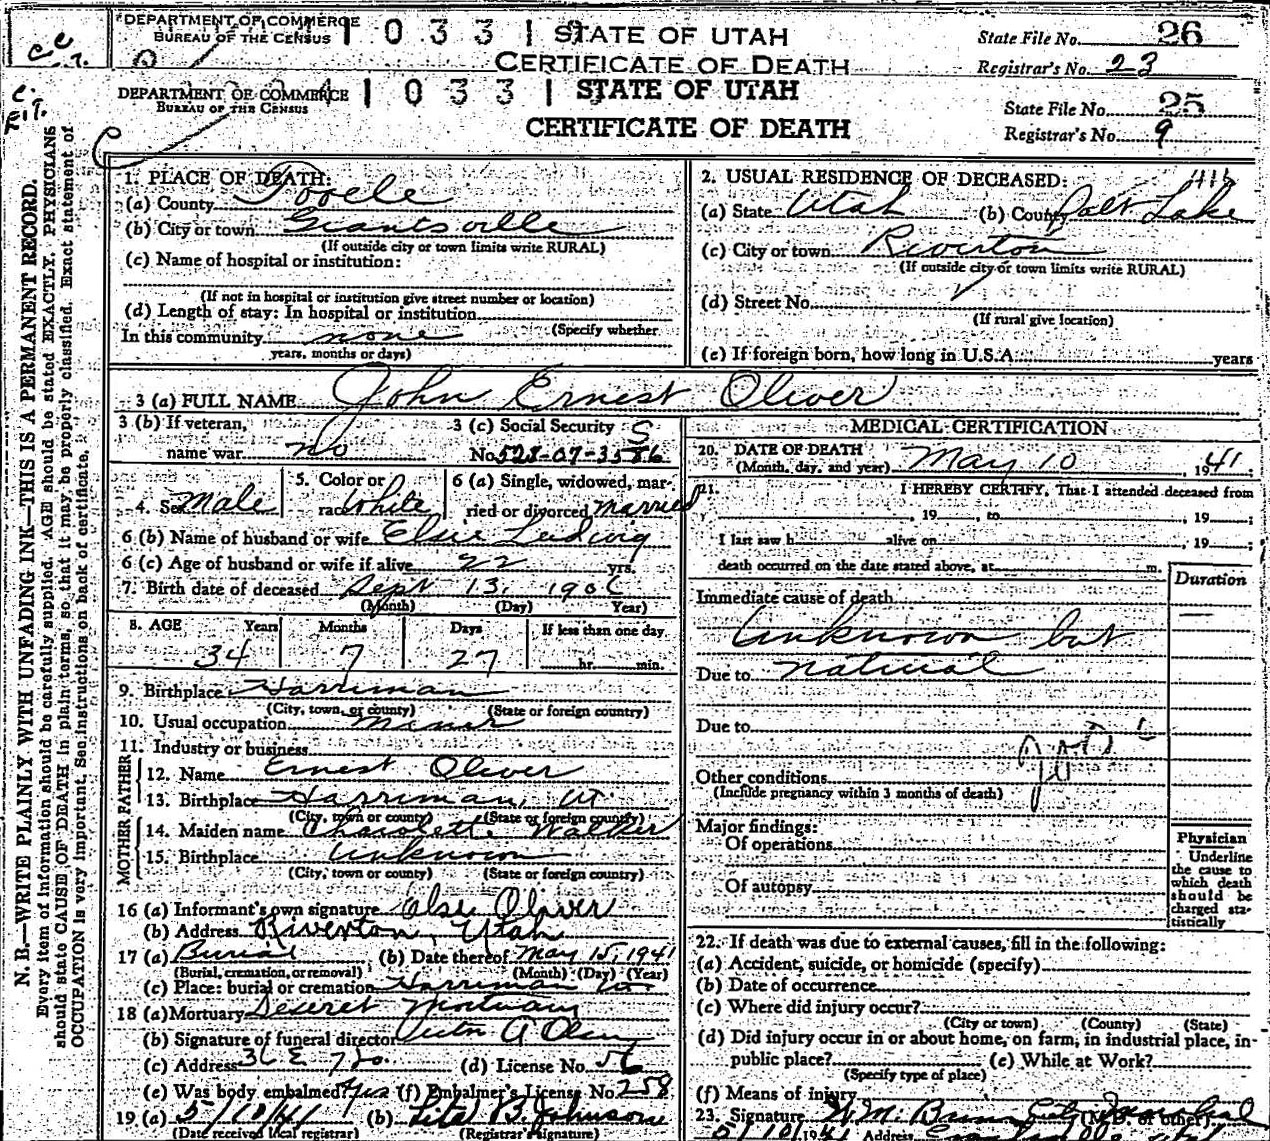 DEPARTMENT OF COMMERCE 1033 STATE OF UTAH State File No. 26
BUREAU OF THE CENSUS
CERTIFICATE OF DEATH Registrar's No. 23
DEPARTMENT OF COMMERCE 1033 STATE OF UTAH
BUREAU OF THE CENSUS State File No. 25
CERTIFICATE OF DEATH Registrar's No. 9
N. B.—WRITE PLAINLY WITH UNFADING INK—THIS IS A PERMANENT RECORD.
Every item of information should be carefully supplied. AGE should be stated EXACTLY. PHYSICIANS
should state CAUSE OF DEATH in plain terms, so that it may be properly classified. Exact statement of
OCCUPATION is very important. See instructions on back of certificate.
1. PLACE OF DEATH:
(a) County Tooele
(b) City or town Grantsville
(If outside city or town limits write RURAL)
(c) Name of hospital or institution:
(If not in hospital or institution give street number or location)
(d) Length of stay: In hospital or institution
(Specify whether
In this community none
years, months or days)
2. USUAL RESIDENCE OF DECEASED:
(a) State Utah (b) County Salt Lake
(c) City or town Riverton
(If outside city or town limits write RURAL)
(d) Street No.
(If rural give location)
(e) If foreign born, how long in U.S.A. years
3 (a) FULL NAME John Ernest Oliver
3 (b) If veteran, 3 (c) Social Security
name war no No. 528-07-3586
4. Sex Male 5. Color or race White 6 (a) Single, widowed, married or divorced married
6 (b) Name of husband or wife Elsie Ludwig
6 (c) Age of husband or wife if alive 22 yrs.
7. Birth date of deceased Sept 13, 1906
(Month) (Day) Year)
8. AGE Years Months Days If less than one day
34 7 27 hr. min.
9. Birthplace Harriman
(City, town, or county) (State or foreign country)
10. Usual occupation miner
11. Industry or business
FATHER
12. Name Ernest Oliver
13. Birthplace Harriman, Ut.
(City, town or county) (State or foreign country)
MOTHER
14. Maiden name Charolette Walker
15. Birthplace Unknown
(City, town or county) (State or foreign country)
16 (a) Informant's own signature Elsie Oliver
(b) Address Riverton, Utah
17 (a) Burial (b) Date thereof May 15, 1941
(Burial, cremation, or removal) (Month) (Day) (Year)
(c) Place: burial or cremation Harriman Ut
18 (a) Mortuary Deseret Mortuary
(b) Signature of funeral director
(c) Address 36 E 7 So. (d) License No. 56
(e) Was body embalmed? yes (f) Embalmer's License No. 258
19 (a) 5/10/41 (b) B. Johnson
(Date received local registrar) (Registrar's signature)
MEDICAL CERTIFICATION
20. DATE OF DEATH
(Month, day, and year) May 10, 1941
21. I HEREBY CERTIFY, That I attended deceased from
, 19 , to , 19 ;
I last saw h alive on , 19 ;
death occurred on the date stated above, at m.
Duration
Immediate cause of death
Unknown but
Due to natural
Due to
Other conditions
(Include pregnancy within 3 months of death)
Major findings:
Of operations
Of autopsy
Physician
Underline
the cause to
which death
should be
charged sta-
tistically
22. If death was due to external causes, fill in the following:
(a) Accident, suicide, or homicide (specify)
(b) Date of occurrence
(c) Where did injury occur?
(City or town) (County) (State)
(d) Did injury occur in or about home, on farm, in industrial place, in
public place? (e) While at Work?
(Specify type of place)
(f) Means of injury
23. Signature (M.D. or other)
5/10/1941 Address